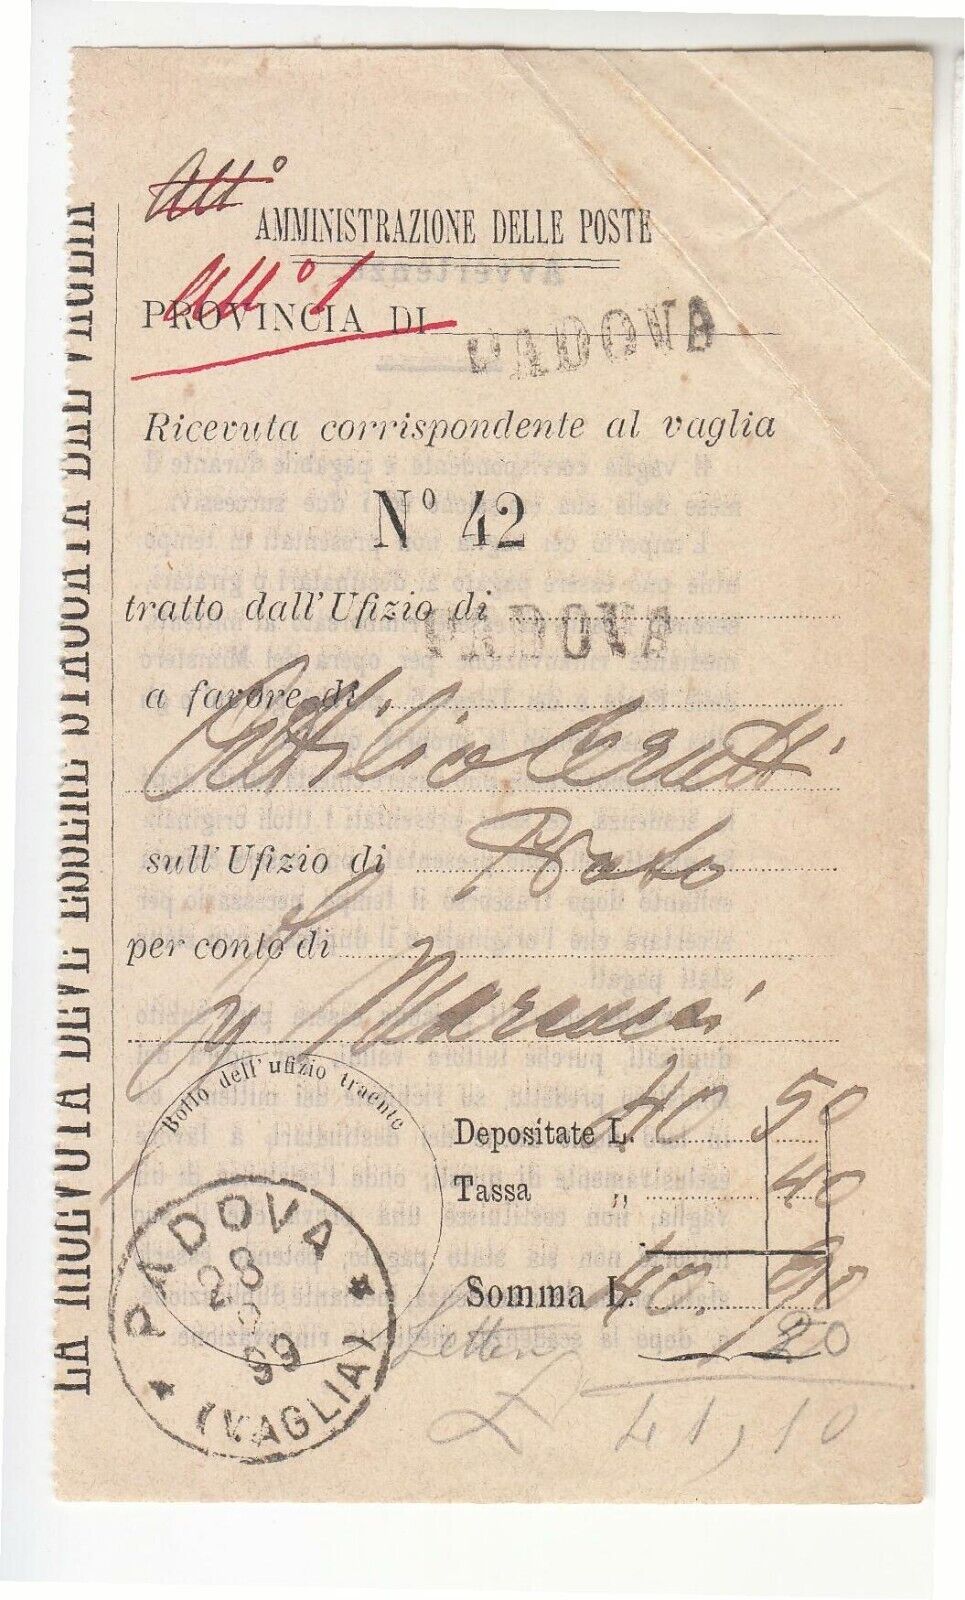 All°
AMMINISTRAZIONE DELLE POSTE
All° 1
PROVINCIA DI PADOVA
Ricevuta corrispondente al vaglia
N° 42
tratto dall'Ufizio di PADOVA
a favore di
Attilio Cerutti
sull'Ufizio di Prato
per conto di
Marcucci
Bollo dell'ufizio traente
Depositate L. 40 50
Tassa „ 40
Somma L. 40. 90
Lettera 20
L 41,10
PADOVA
28
99
(VAGLIA)
LA RICEVUTA DEVE ESSERE STACCATA DAL VAGLIA